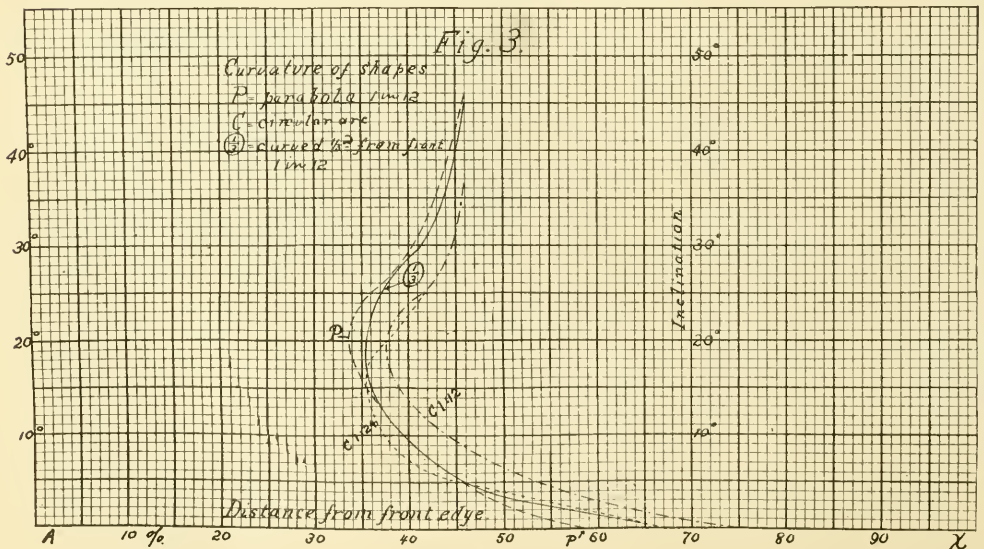 Fig. 3.
Curvature of shapes
P = parabola 1 in 12
C = circular arc
1/3 = curved 1/3 from front
1 in 12
50°
40°
30°
20°
10°
50°
40°
30°
20°
10°
Inclination
1/3
P
C 1:12
C 1:24
Distance from front edge
A 10 % 20 30 40 50 p' 60 70 80 90 X